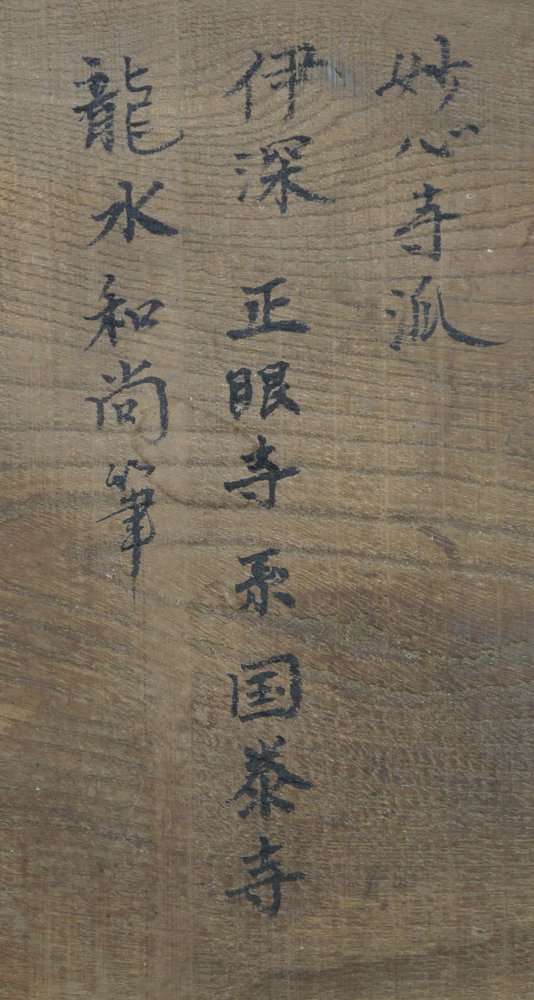 妙心寺派
伊深 正眼寺系国泰寺
龍水和尚筆